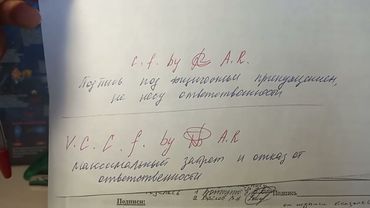 c. f. by A.R.
Подпись под жизненным принуждением,
не несу ответственности
V. C. C. f. by A.R
максимальный запрет и отказ от
ответственности
Подпись:
Подпись